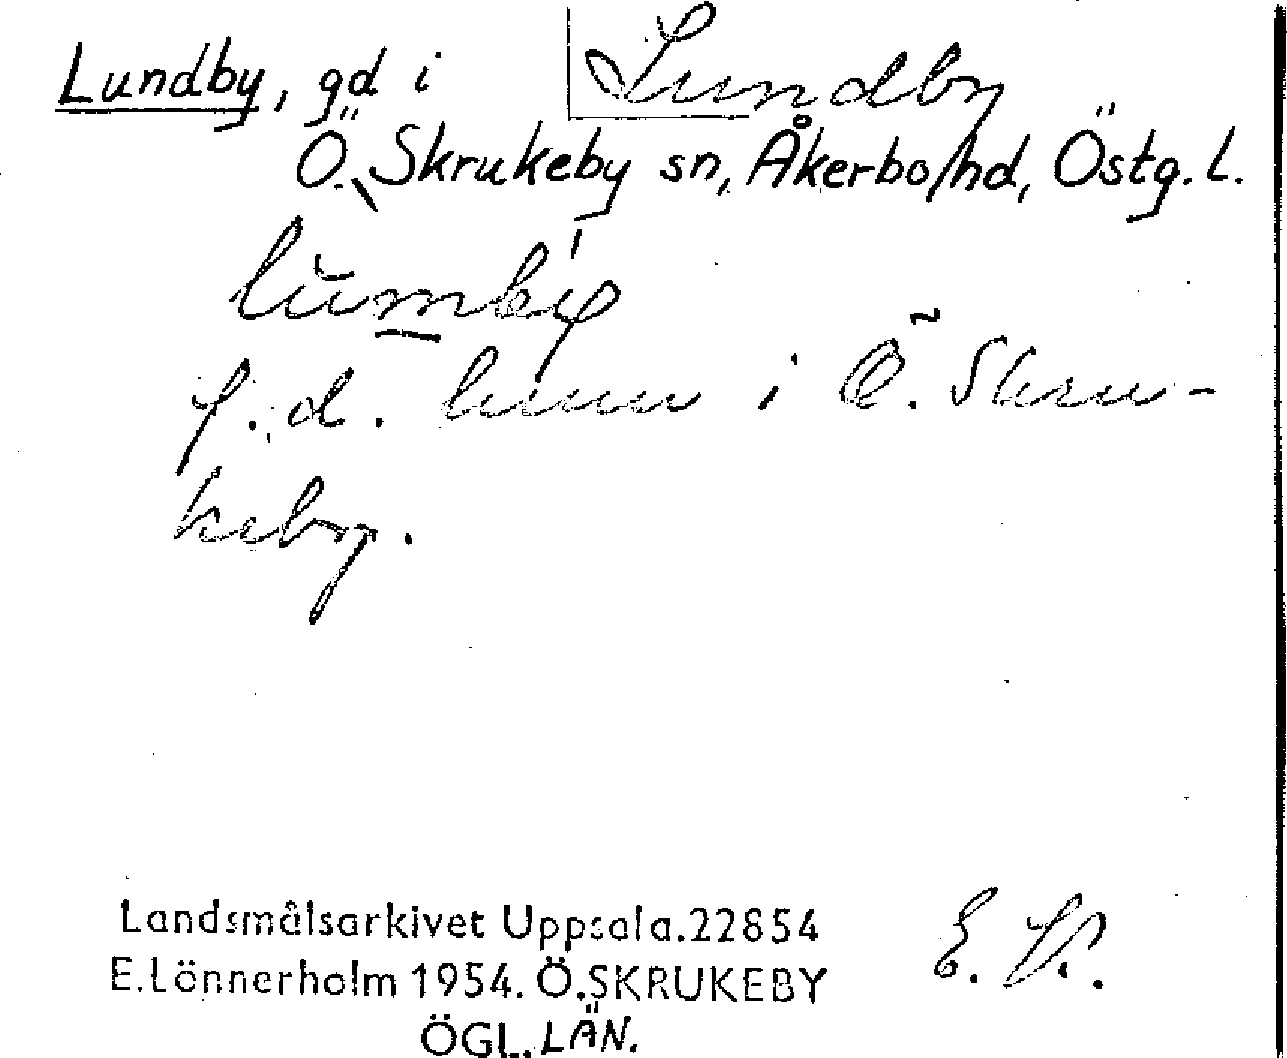 Lundby, gd i
Lundby
Ö. Skrukeby sn, Åkerbo hd, Östg. L.
f. d. hemm i Ö. Skru-
keby.
Landsmålsarkivet Uppsala.22854
E.Lönnerholm 1954. Ö.SKRUKEBY
ÖGL. LÄN.